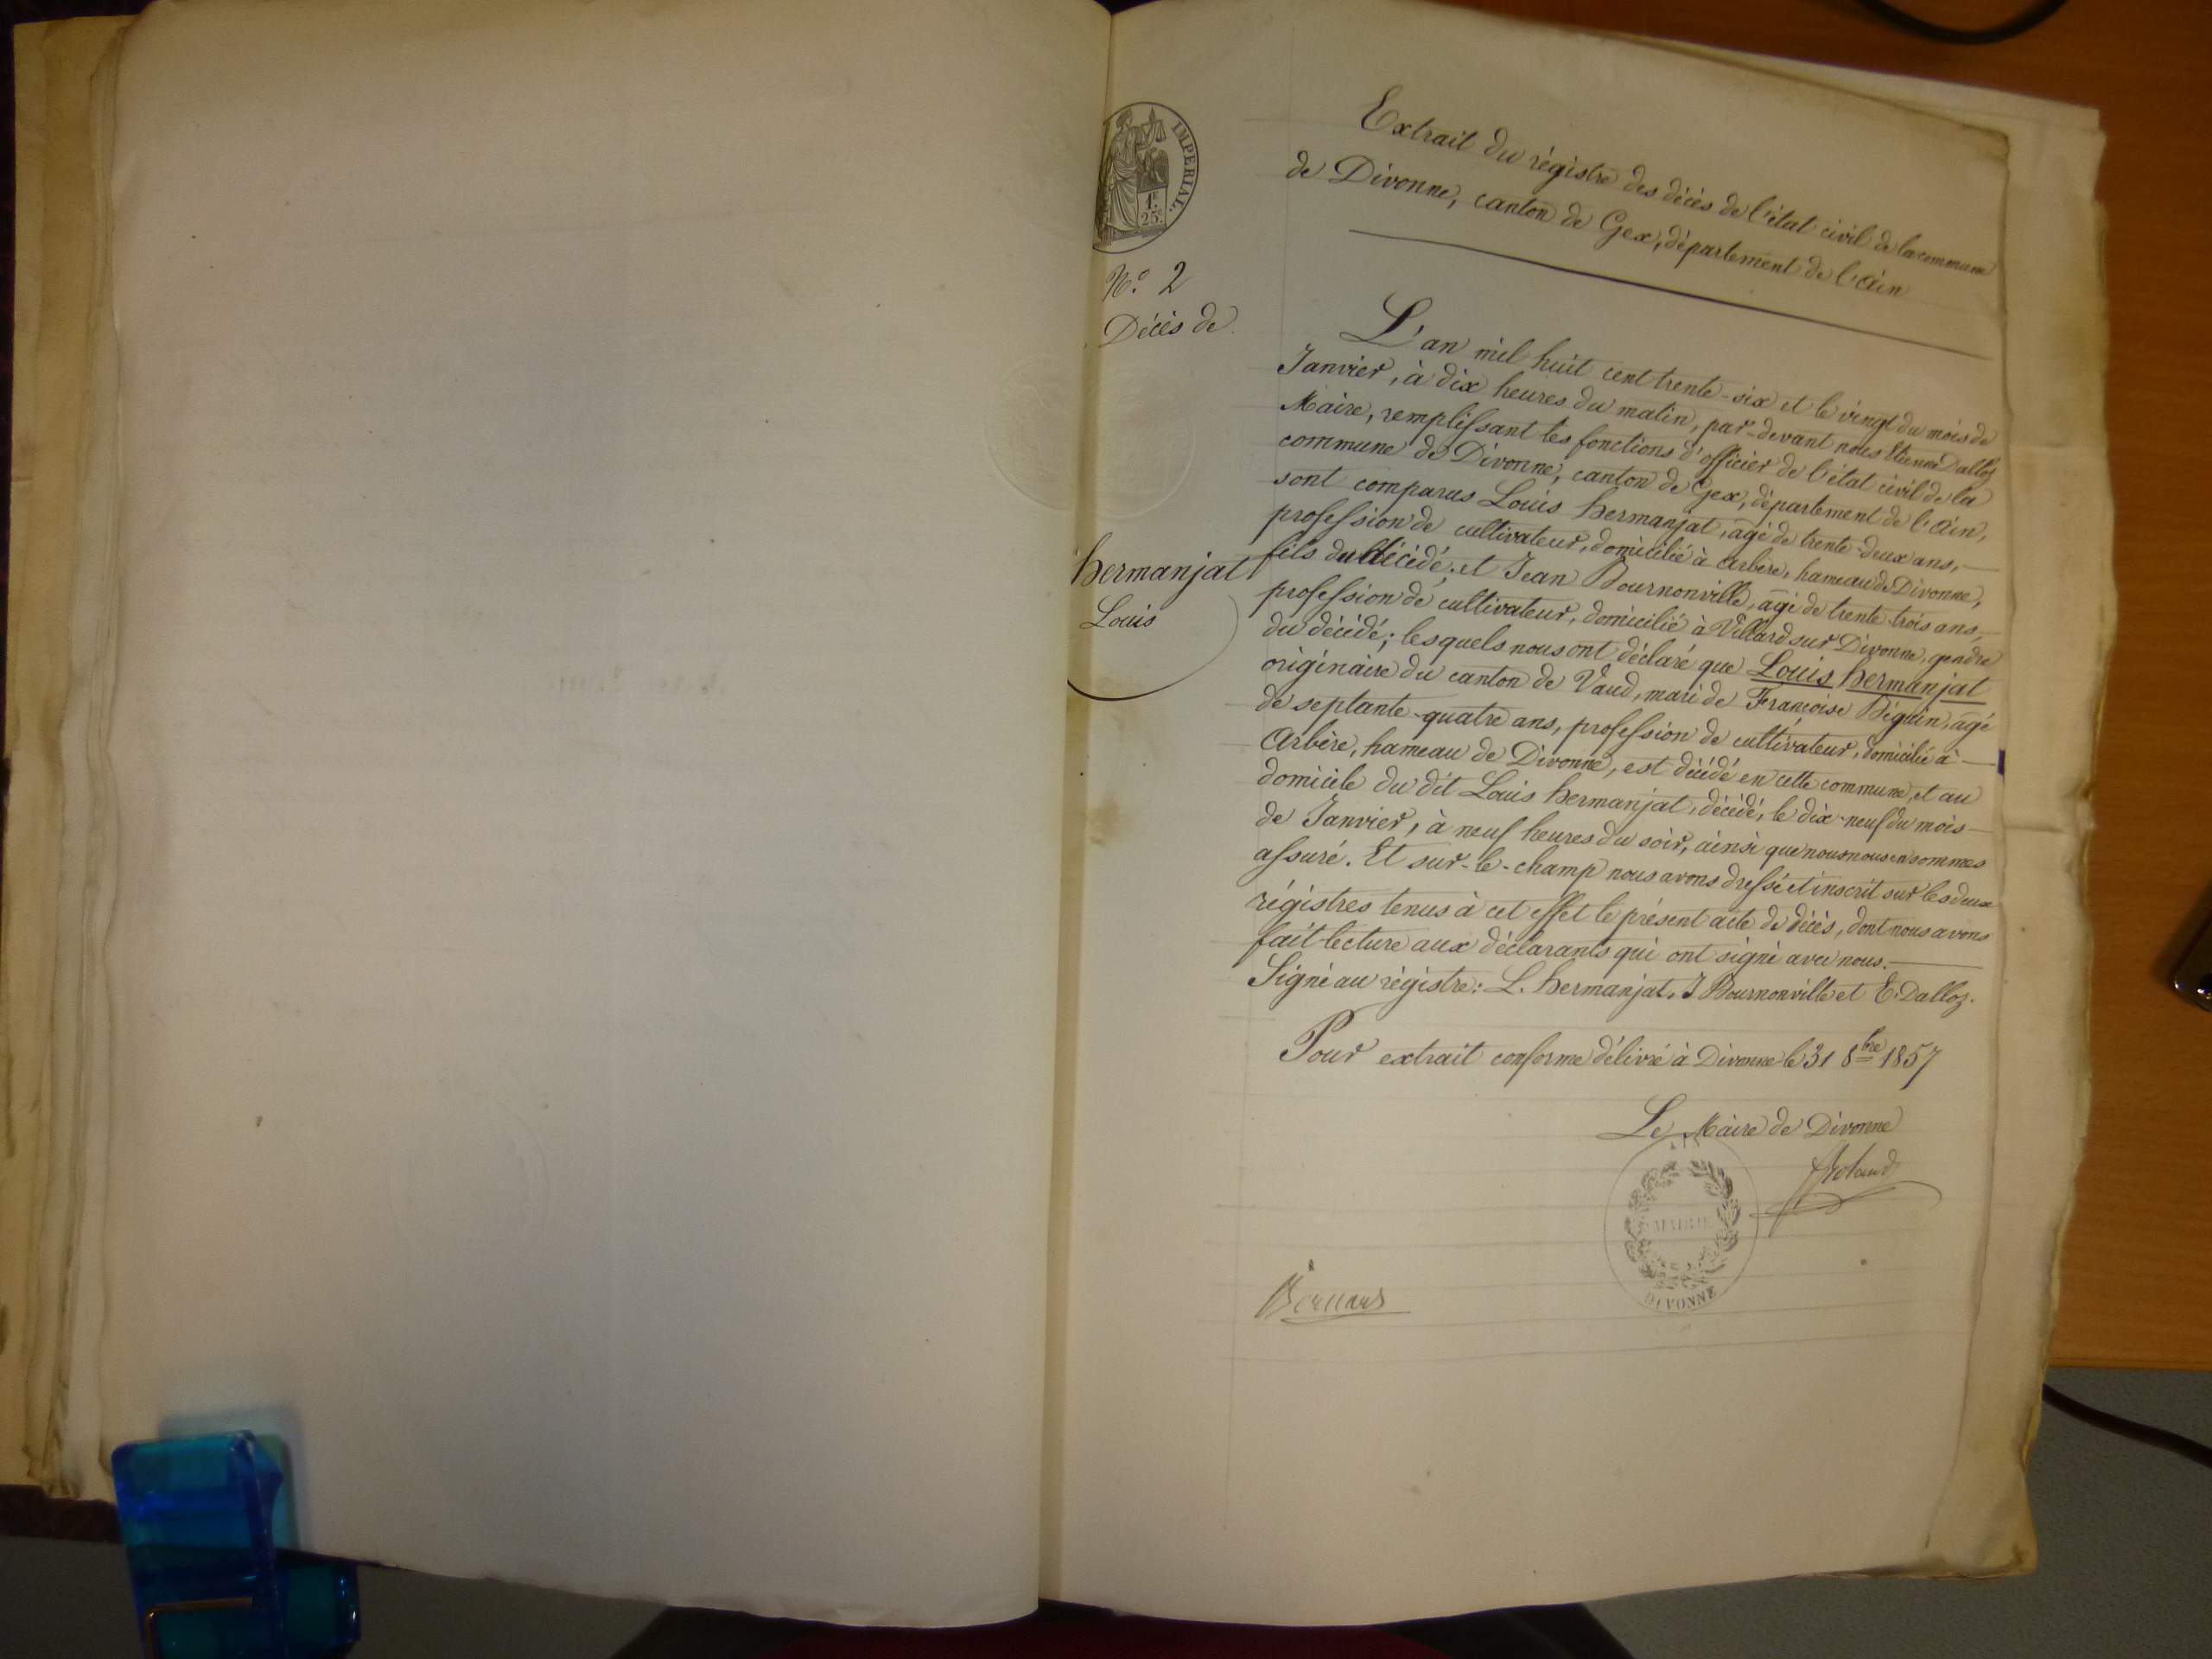 IMPERIAL.
1F.
25c.
No. 2
Décès de
hermanjat
Louis
Extrait du régistre des décès de l'état civil de la commune
de Divonne, canton de Gex, département de l'Ain
L'an mil huit cent trente-six et le vingt du mois de
Janvier, à dix heures du matin, par-devant nous Etienne Dalloz
Maire, remplissant les fonctions d'officier de l'état civil de la
commune de Divonne, canton de Gex, département de l'Ain,
sont comparus Louis hermanjat, agé de trente-deux ans,
profession de cultivateur, domicilié à Arbère, hameau de Divonne,
fils du décédé, et Jean Bournonville, agé de trente-trois ans,
profession de cultivateur, domicilié à Villard sur Divonne, gendre
du décédé; lesquels nous ont déclaré que Louis hermanjat
originaire du canton de Vaud, mari de Françoise Béguin, agé
de septante-quatre ans, profession de cultivateur, domicilié à
Arbère, hameau de Divonne, est décédé en cette commune, et au
domicile du dit Louis hermanjat, décédé, le dix-neuf du mois
de Janvier, à neuf heures du soir, ainsi que nous nous en sommes
assuré. Et sur-le-champ nous avons dressé et inscrit sur les deux
régistres tenus à cet effet le présent acte de décès, dont nous avons
fait lecture aux déclarants qui ont signé avec nous.
Signé au régistre: L. hermanjat, J Bournonville et E. Dalloz.
Pour extrait conforme délivré à Divonne le 31 8bre 1857
Le Maire de Divonne
MAIRIE
DIVONNE